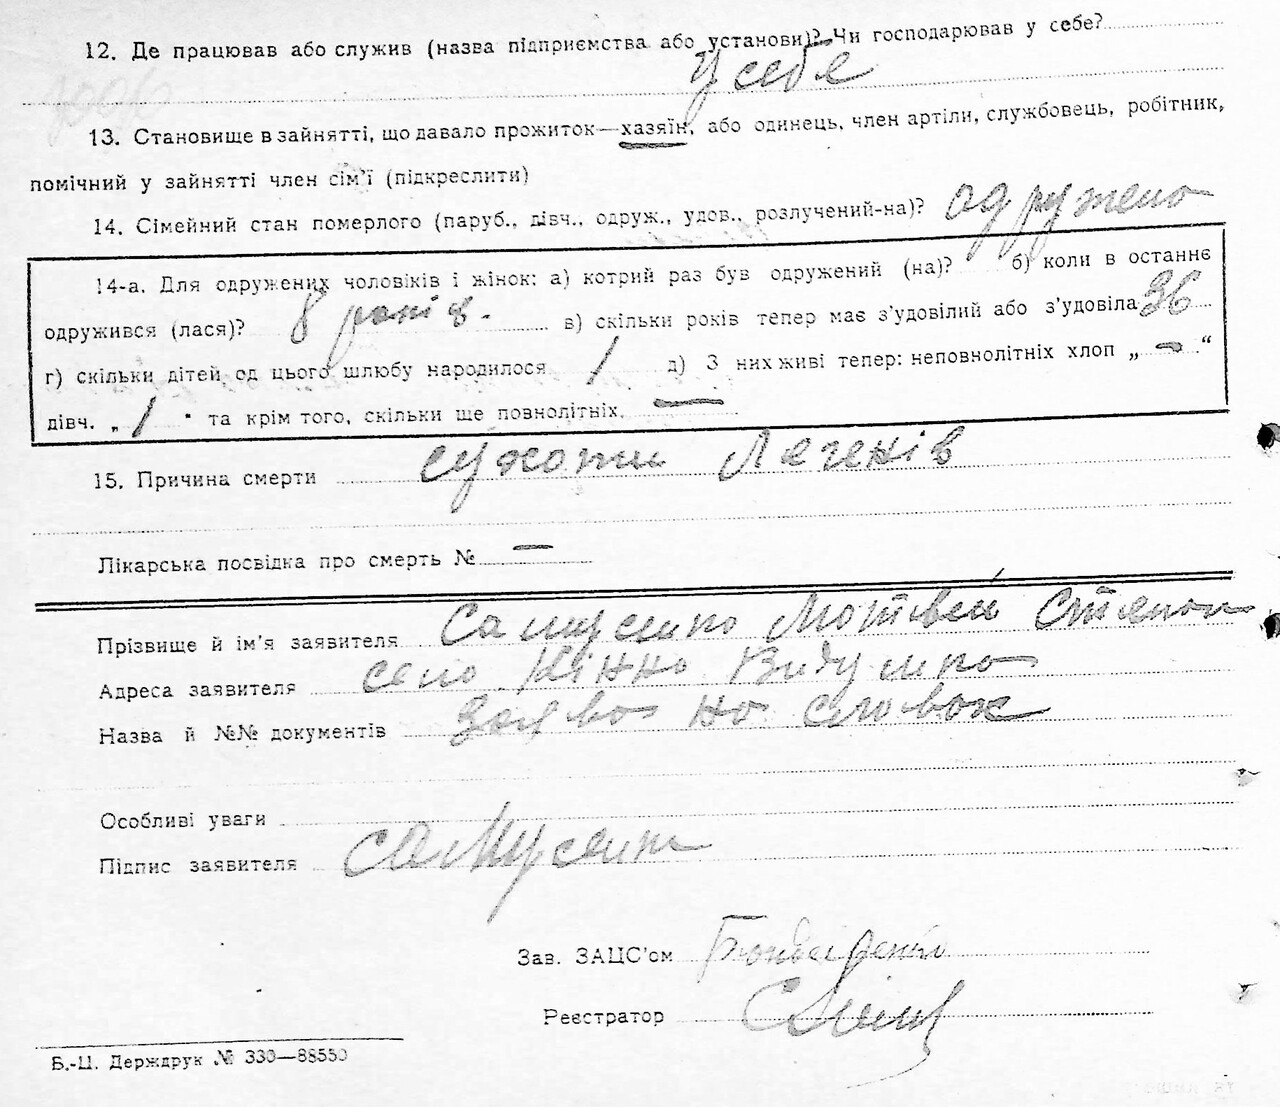 12. Де працював або служив (назва підприємства або установи)? Чи господарював у себе?
У себе
13. Становище в зайнятті, що давало прожиток—хазяїн, або одинець, член артіли, службовець, робітник,
помічний у зайнятті член сім'ї (підкреслити)
14. Сімейний стан померлого (паруб., дівч., одруж., удов., розлучений-на)? одружено
14-а. Для одружених чоловіків і жінок: а) котрий раз був одружений (на)? б) коли в останнє
одружився (лася)? 8 років. в) скільки років тепер має з'удовілий або з'удовіла 36
г) скільки дітей од цього шлюбу народилося 1 д) З них живі тепер: неповнолітніх хлоп „ — “
дівч. „ 1 " та крім того, скільки ще повнолітніх. —
15. Причина смерти сухоти Легенів
Лікарська посвідка про смерть № —
Прізвище й ім'я заявителя Самусенко Мотвей Степан
Адреса заявителя село
Назва й №№ документів заява на словах
Особливі уваги
Підпис заявителя Самусенко
Зав. ЗАЦС'ом Бондаренко
Реєстратор
Б.-Ц. Держдрук № 330—88550